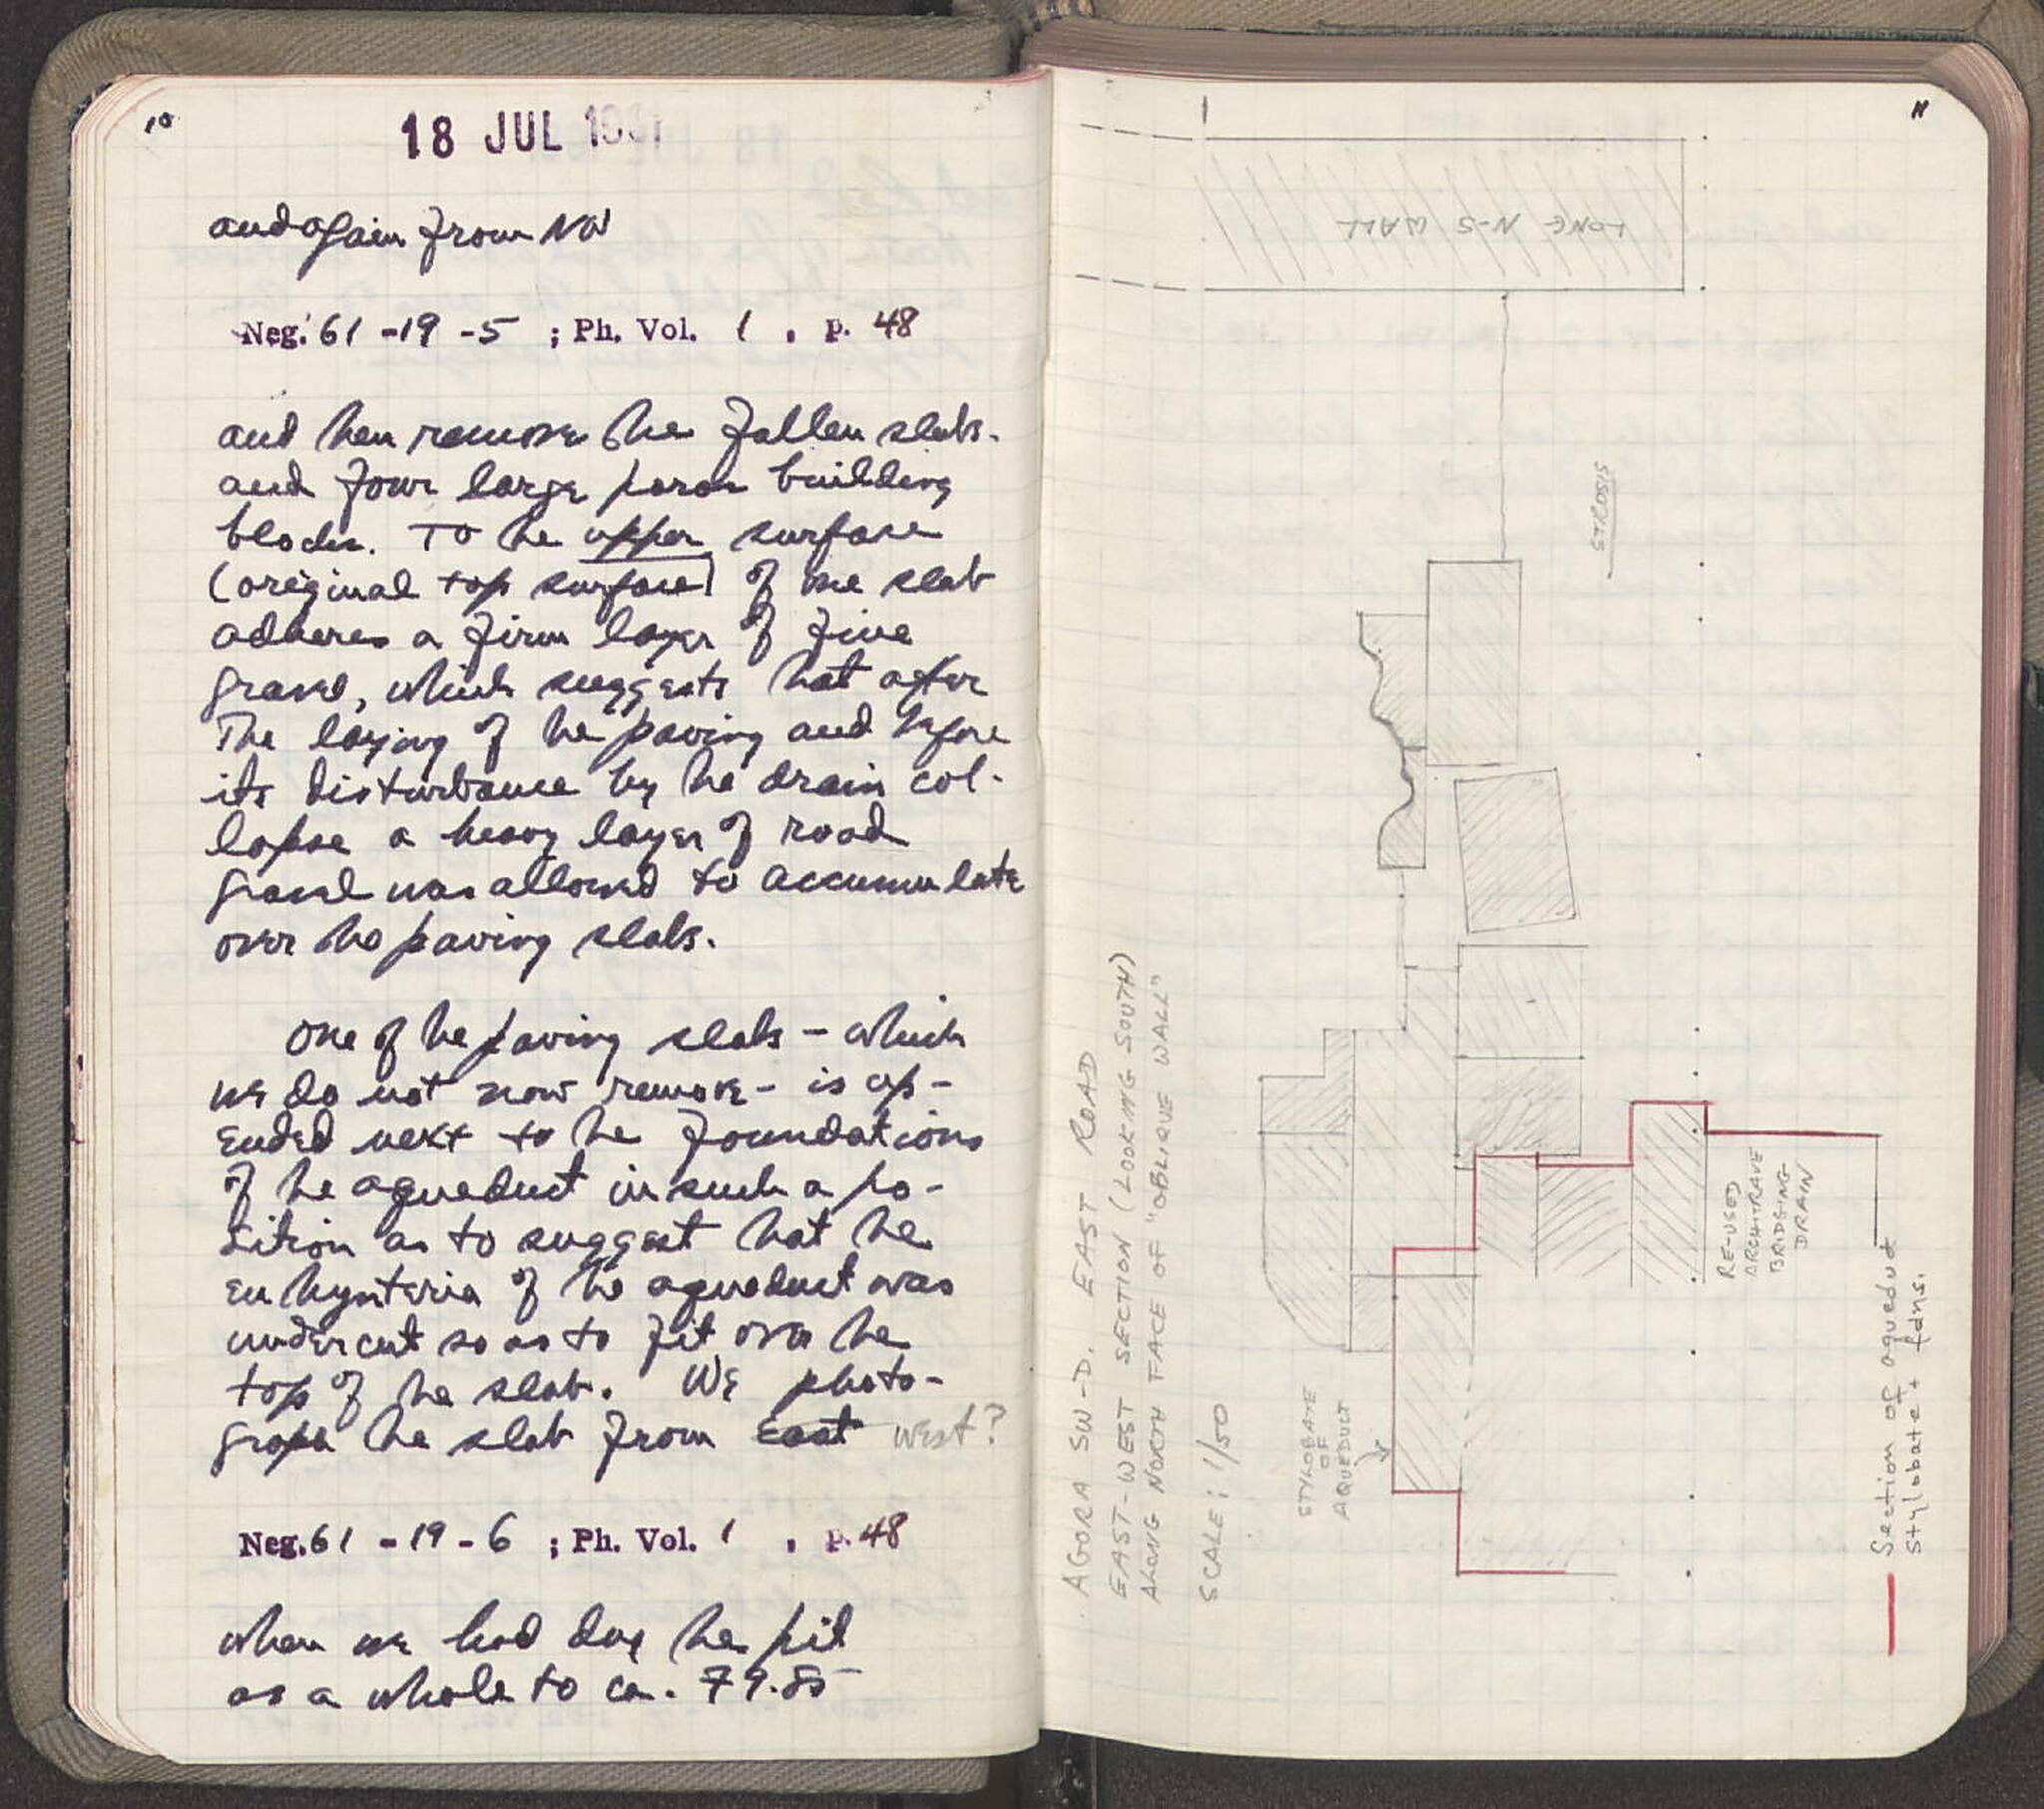 10
18 JUL 1961
and again from NW
Neg. 61 - 19 - 5 ; Ph. Vol. 1 , p. 48
and then remove the fallen slabs.
and four large poros building
blocks. To the upper surface
(original top surface) of one slab
adheres a firm layer of fine
gravel, which suggests that after
The laying of the paving and before
its disturbance by the drain col-
lapse a heavy layer of road
gravel was allowed to accumulate
over the paving slabs.
One of the paving slabs – which
we do not now remove – is up-
ended next to the foundations
of the aqueduct in such a po-
sition as to suggest that the
euthynteria of the aqueduct was
undercut so as to fit over the
top of the slab. We photo-
graph the slab from east west?
Neg. 61 - 19 - 6 ; Ph. Vol. 1 , p. 48
when we had dug the pit
as a whole to ca. 79.85
11
LONG N-S WALL
STROSIS
AGORA SW-D. EAST ROAD
EAST-WEST SECTION (LOOKING SOUTH)
ALONG NORTH FACE OF "OBLIQUE WALL"
SCALE: 1/50
STYLOBATE
OF
AQUEDUCT
RE-USED
ARCHITRAVE
BRIDGING
DRAIN
Section of aqueduct
stylobate + fdns.